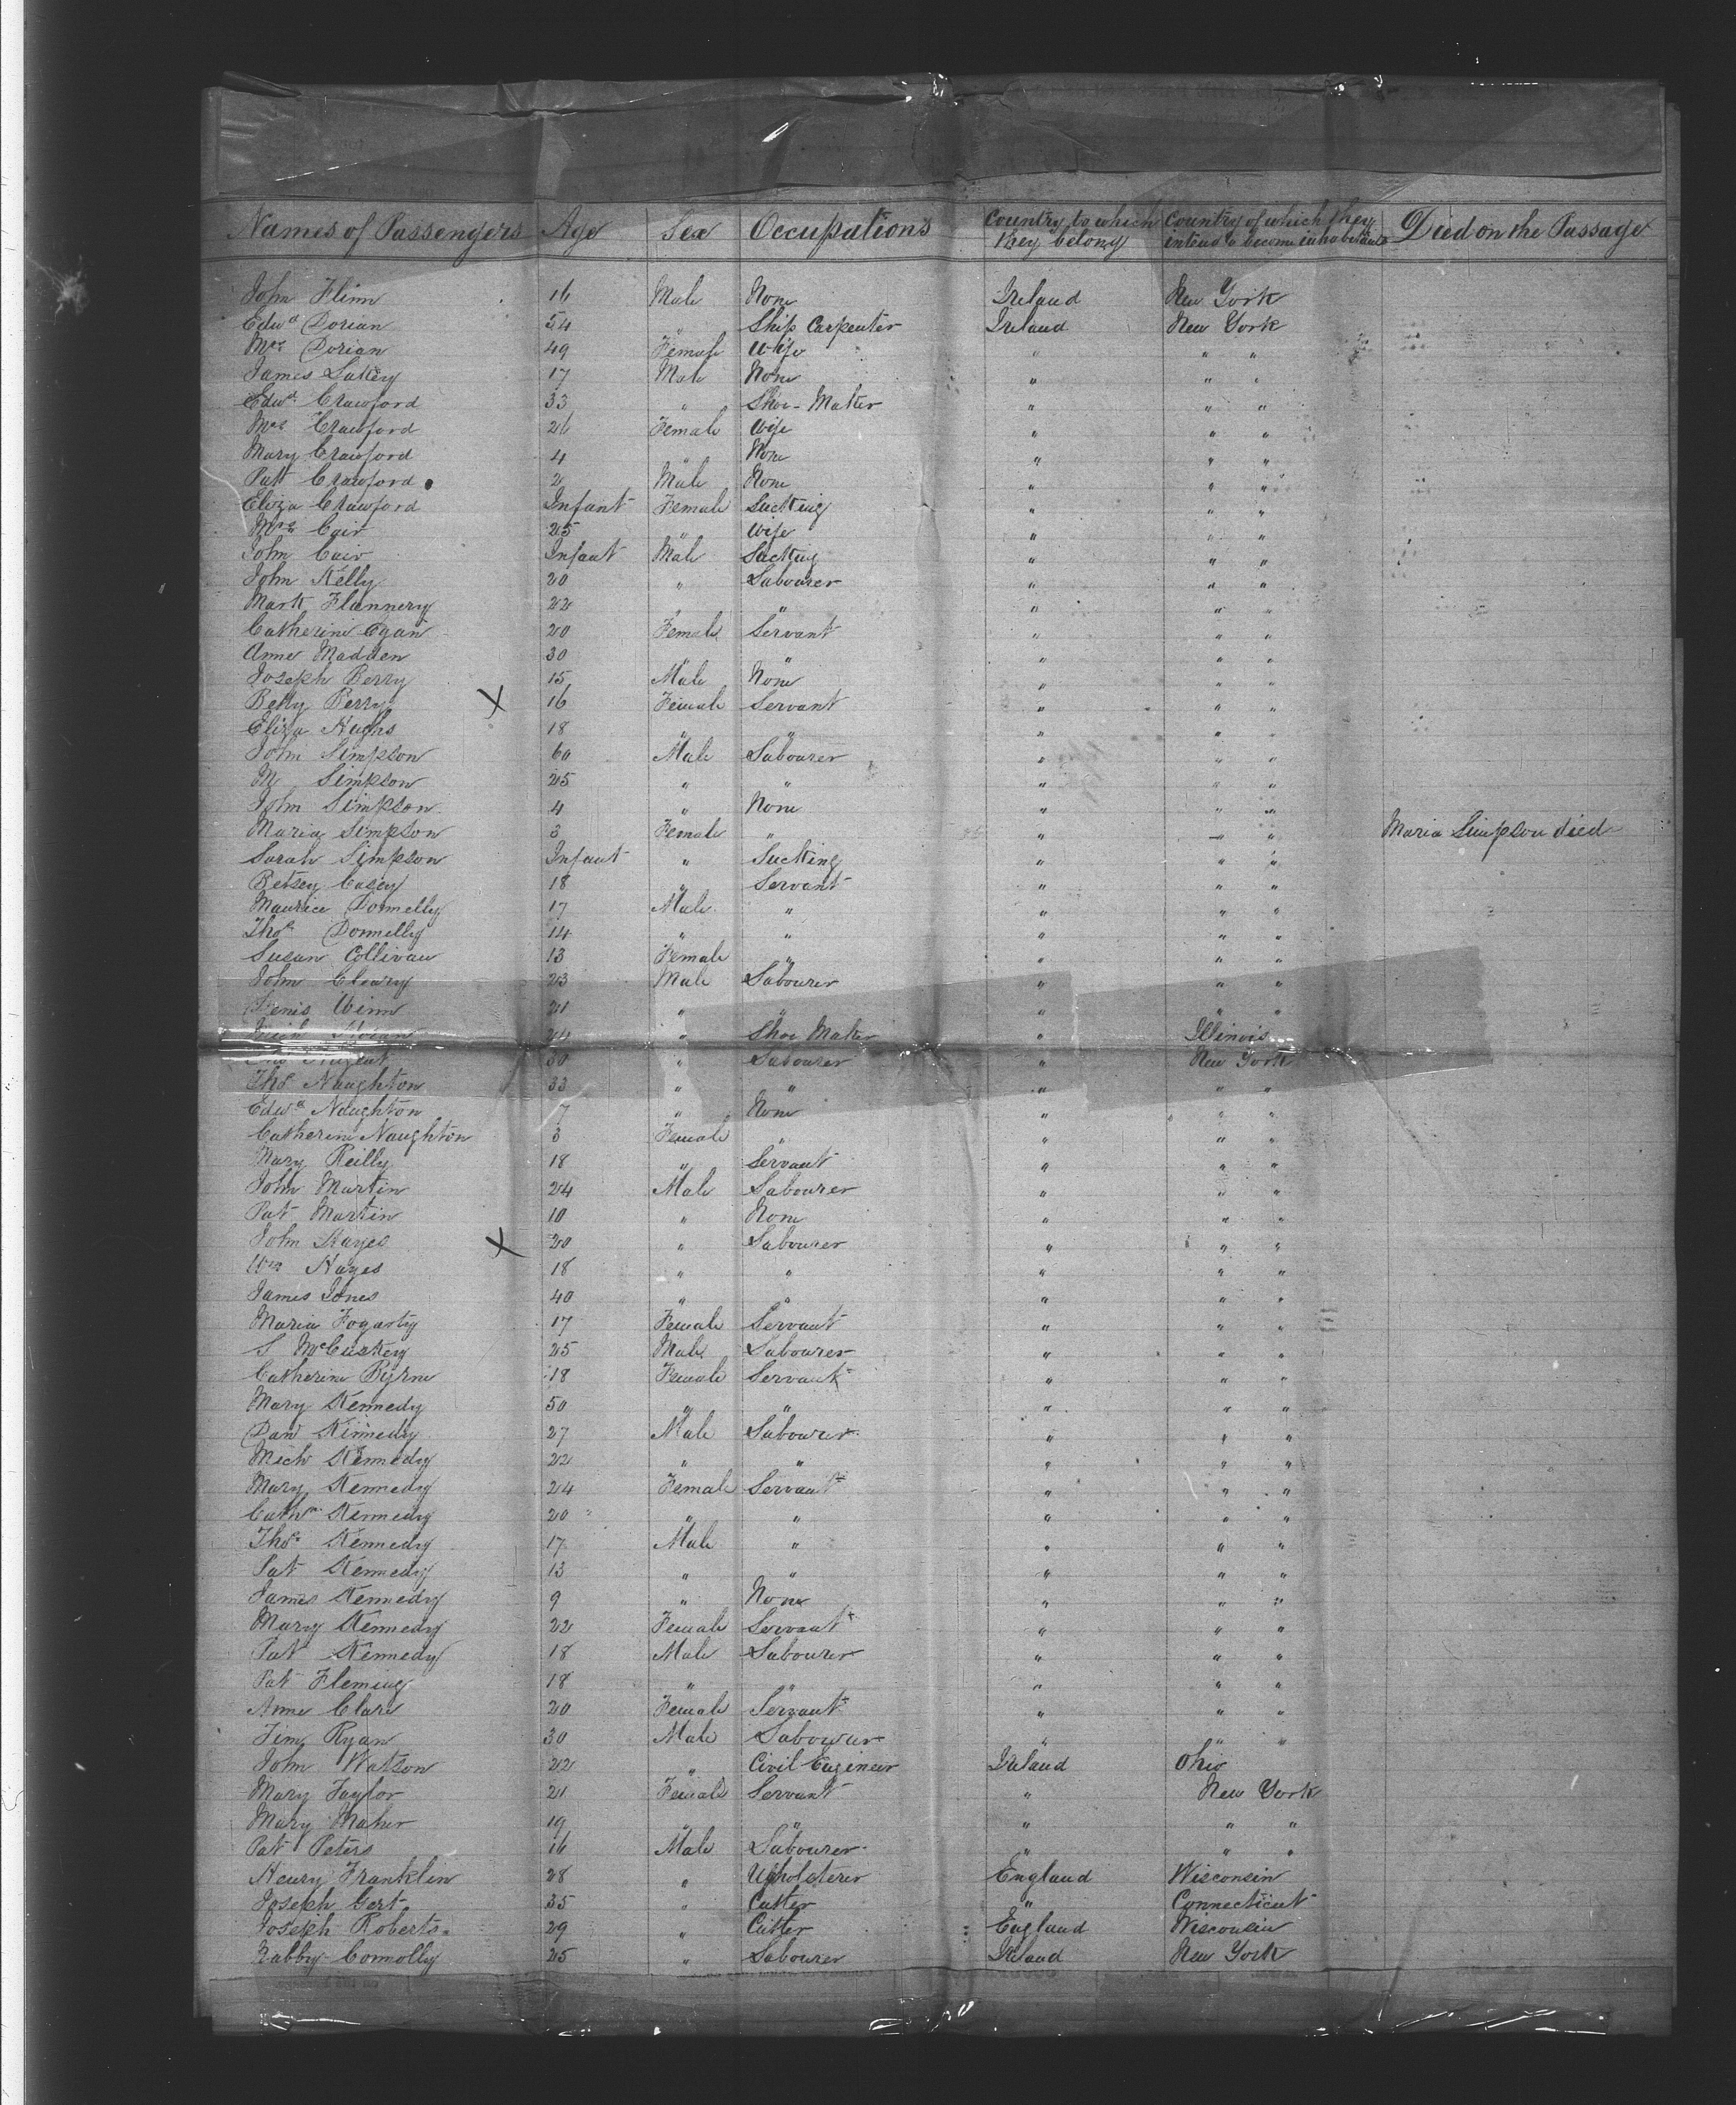 Names of Passengers Age Sex Occupations Country to which they belong Country of which they intend to become inhabitants Died on the Passage
John Flinn 16 Male None Ireland New York
Edwd Dorian 54 " Ship Carpenter Ireland New York
Mrs Dorian 49 Female Wife " " "
James Lakey 17 Male None " " "
Edwd Crawford 33 " Shoe-Maker " " "
Mrs Crawford 26 Female Wife " " "
Mary Crawford 4 " None " " "
Patt Crawford 2 Male None " " "
Eliza Crawford Infant Female Sucking " " "
Mrs Cair 25 " Wife " " "
John Cair Infant Male Sucking " " "
John Kelly 20 " Labourer " " "
Mark Flannery 22 " " " "
Catherine Egan 20 Female Servant " " "
Anne Madden 30 " " " " "
Joseph Berry 15 Male None " " "
Betty Berry X 16 Female Servant " " "
Eliza Hughs 18 " " " " "
John Simpson 60 Male Labourer " " "
M Simpson 25 " " " " "
John Simpson 4 " None " " "
Maria Simpson 3 Female " " " " Maria Simpson died
Sarah Simpson Infant " Sucking " " "
Betsey Casey 18 " Servant " " "
Maurice Donnelly 17 Male " " " "
Thos Donnelly 14 " " " " "
Susan Collivan 13 Female " " " "
John Cleary 23 Male Labourer " " "
Denis Winn 21 " " " " "
Moran 24 " Shoe Maker " Illinois
Nugent 30 " Labourer " New York
Thos Naughton 33 " " " " "
Edwd Naughton 7 " None " " "
Catherine Naughton 3 Female " " " "
Mary Reilly 18 " Servant " " "
John Martin 24 Male Labourer " " "
Pat Martin 10 " None " " "
John Hayes X 20 " Labourer " " "
Wm Hayes 18 " " " " "
James Jones 40 " " " " "
Maria Fogarty 17 Female Servant " " "
S McCuskey 25 Male Labourer " " "
Catherine Byrne 18 Female Servant " " "
Mary Kennedy 50 " " " " "
Dan Kennedy 27 Male Labourer " " "
Mich Kennedy 22 " " " " "
Mary Kennedy 24 Female Servant " " "
Cathn Kennedy 20 " " " " "
Thos Kennedy 17 Male " " " "
Pat Kennedy 13 " " " " "
James Kennedy 9 " None " " "
Mary Kennedy 22 Female Servant " " "
Pat Kennedy 18 Male Labourer " " "
Pat Fleming 18 " " " "
Anne Clare 20 Female Servant " " "
Tim Ryan 30 Male Labourer " " "
John Watson 22 " Civil Engineer Ireland Ohio
Mary Taylor 21 Female Servant " New York
Mary Maher 19 " " " " "
Pat Peters 16 Male Labourer " " "
Henry Franklin 28 " Upholsterer England Wisconsin
Joseph Gert 35 " Cutter " Connecticut
Joseph Roberts 29 " Cutter England Wisconsin
Nabby Connolly 25 " Labourer Ireland New York